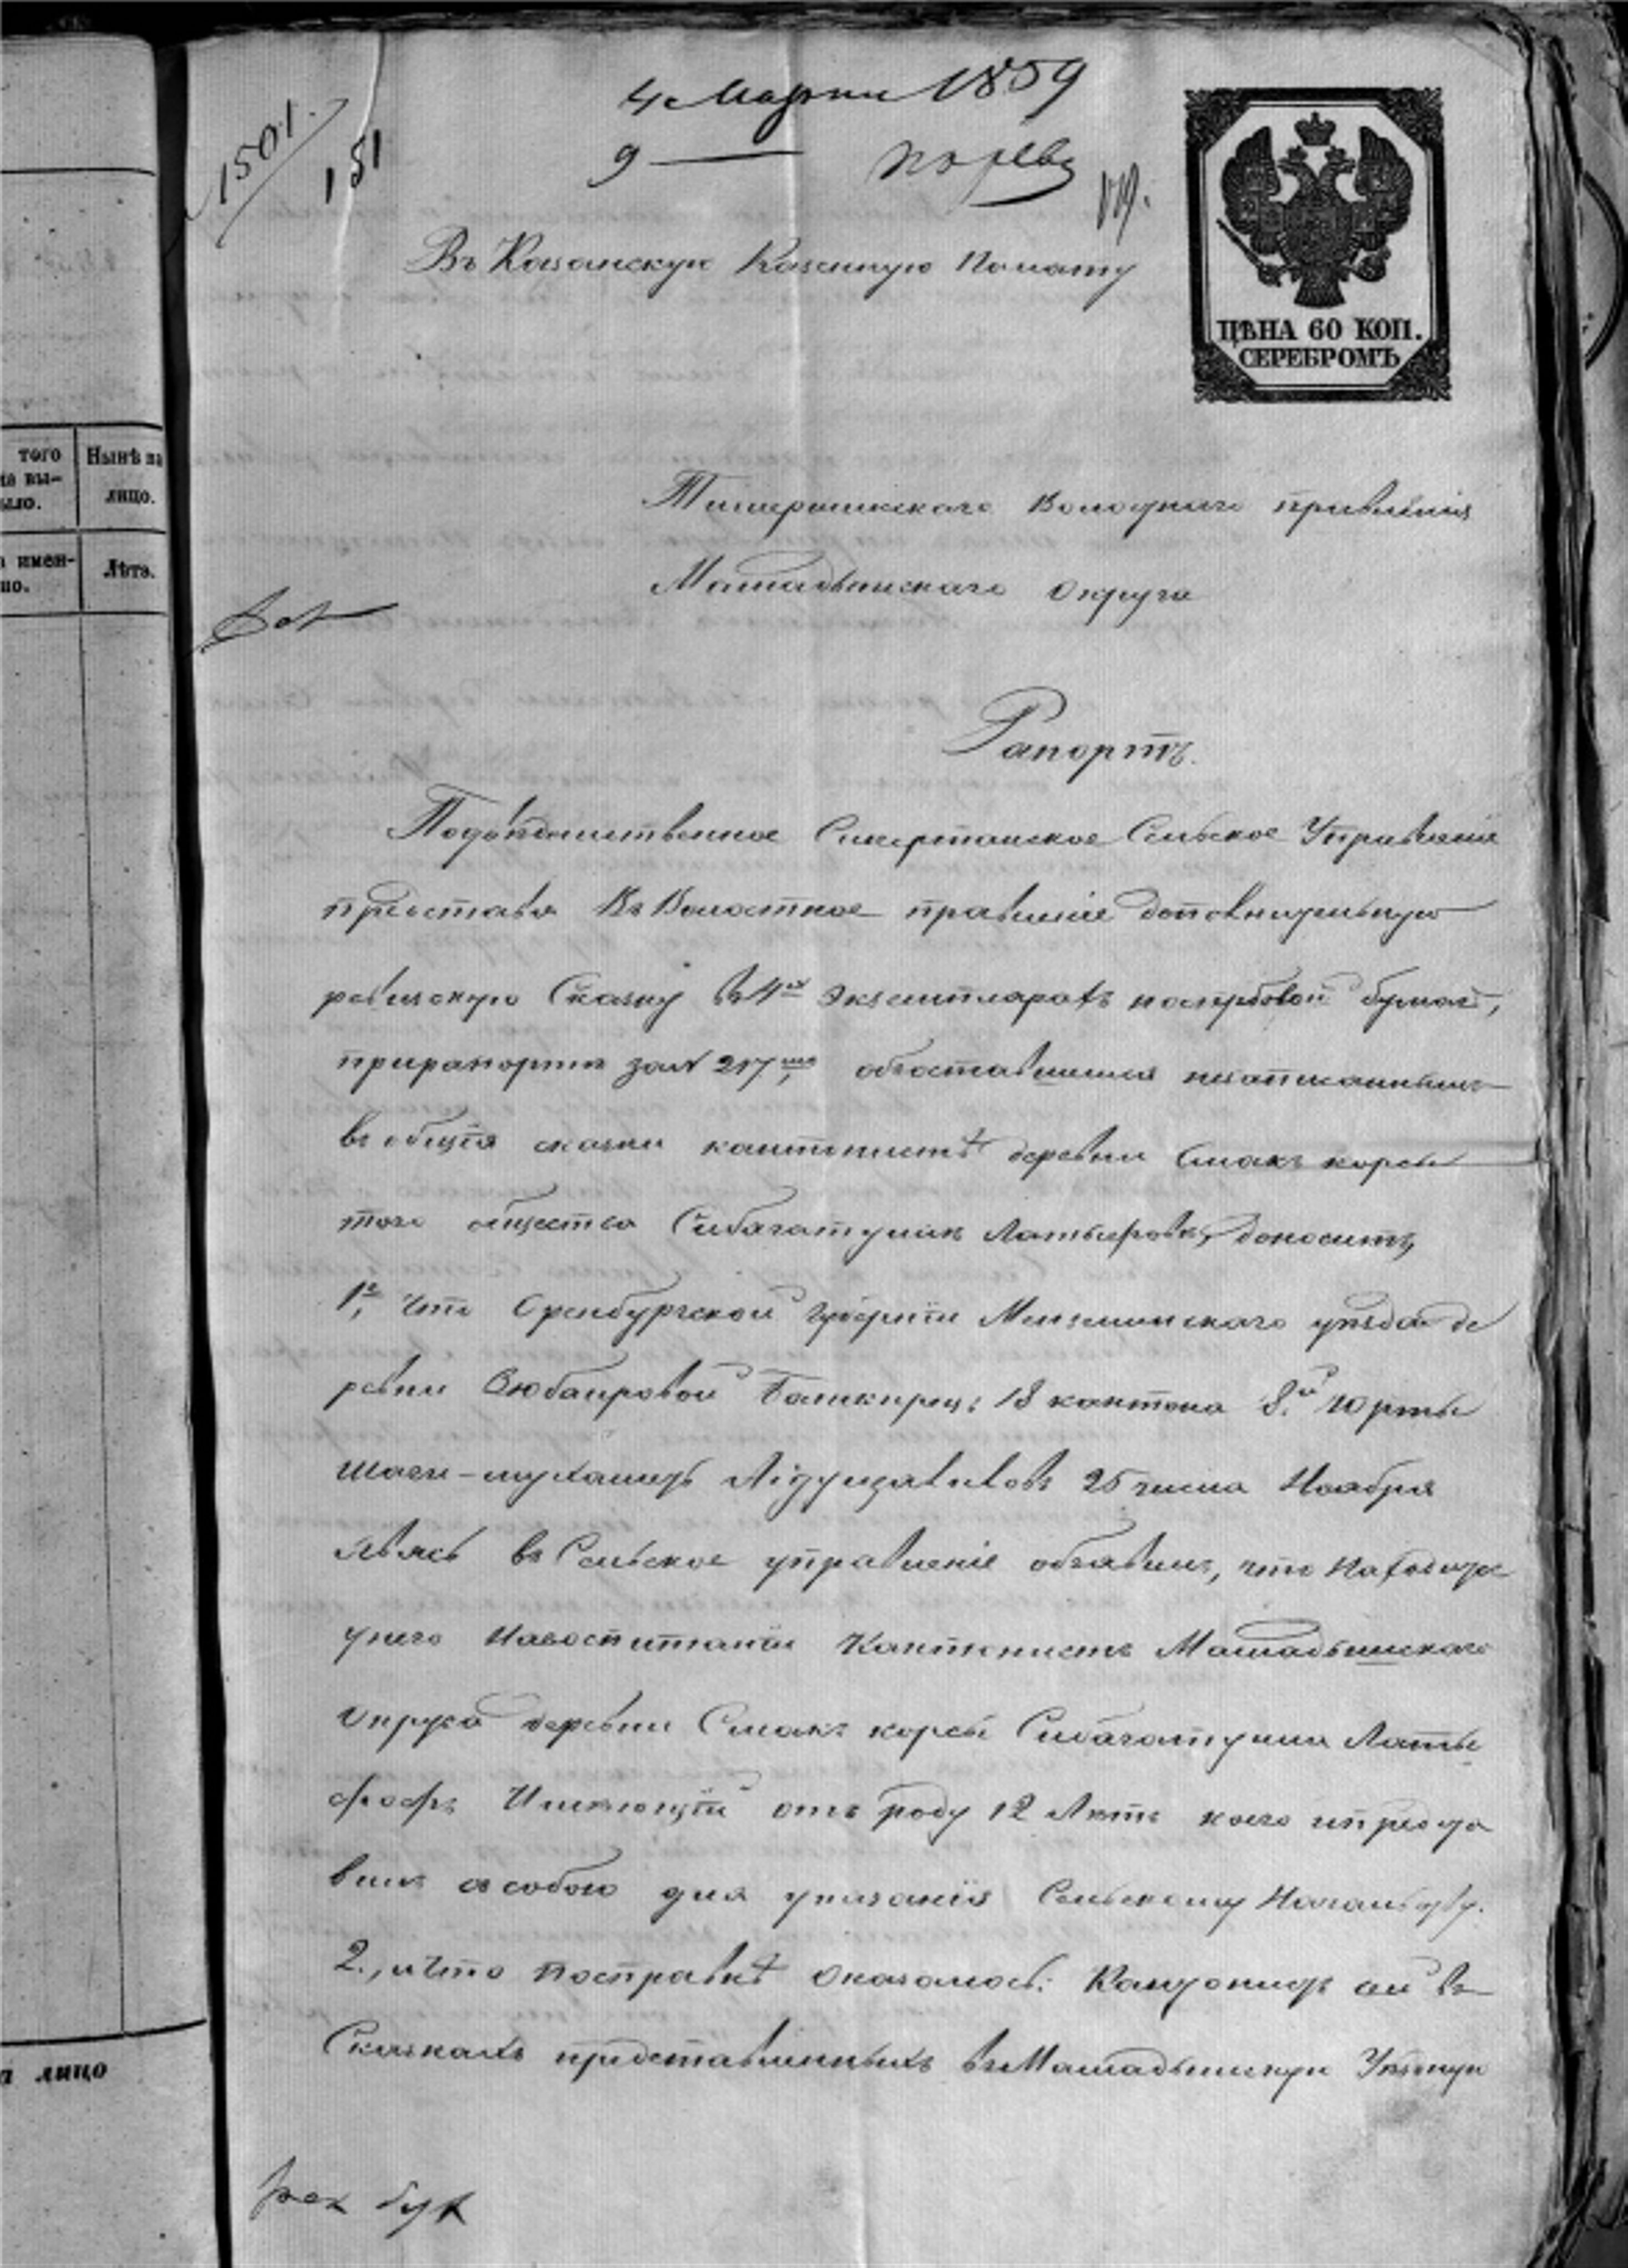 1501.
151
4 Марта 1859
9 —
Въ Казанскую Казенную Полату
ЦѢНА 60 КОП.
СЕРЕБРОМЪ
того
Нынѣ на
вы-
лицо.
ыло.
имен-
Лѣта.
но.
Волостнаго правленія
Мамадышскаго Округа
Рапортъ.
Подвѣдомственное Сельское Управленіе
представя Въ Волостное правленіе дополнительную
ревизскую Сказку въ 4х экземплярахъ негербовой бумаги,
прирапортѣ за № 217мъ, обоставшимся незаписаннымъ
въ общія сказки кантонистѣ деревни Смакъ корсы
того общества Сибагатулинъ Латыфовъ, доноситъ,
1е, что Оренбургской Губерніи Мензелинскаго уѣзда де
ревни Аюбаировой Башкирец: 13 кантона 8й Юрты
Шаги-мухаметъ 25 числа Ноября
явясь въ Сельское управленіе объявилъ, что Находится
унего Навоспитаніи Кантонистъ Мамадышскаго
Округа деревни Смакъ корсы Сибагатулинъ Латы
фофъ Имѣющій отъ роду 12 Лѣтъ коего ипредста
вилъ особою для указанія Сельскому Начальству.
2., ичто Посправкѣ Оказалось: Кантонистъ сей въ
Сказкахъ представленныхъ въ Мамадышскую Уѣздную
лицо